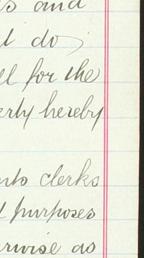 s and
t do ;
ll for the
erty hereby
nts clerks
d purposes
erwise as